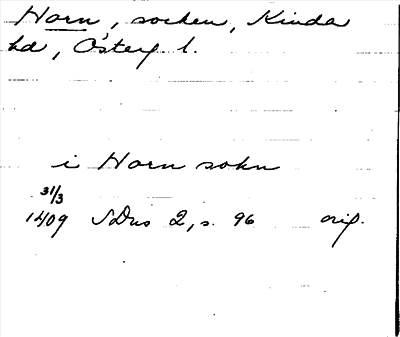 Horn, socken, Kinda
hd, Österg. l.
i Horn sokn
31/3
1409 SDns 2, s. 96 orig.